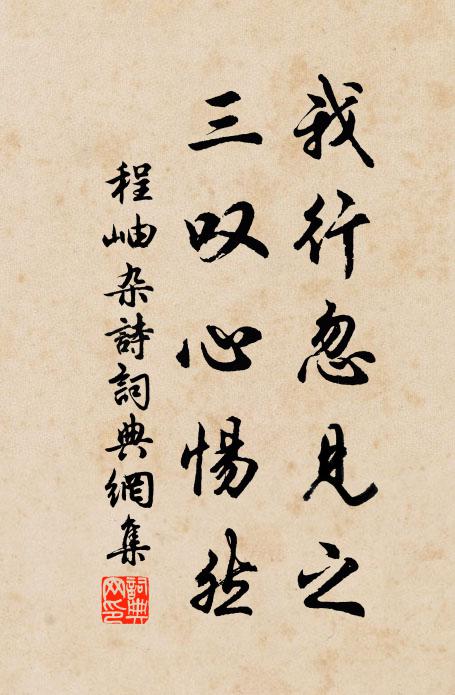 我行忽見之
三叹心惕然
程岫杂詩詞典網集
詞典网印